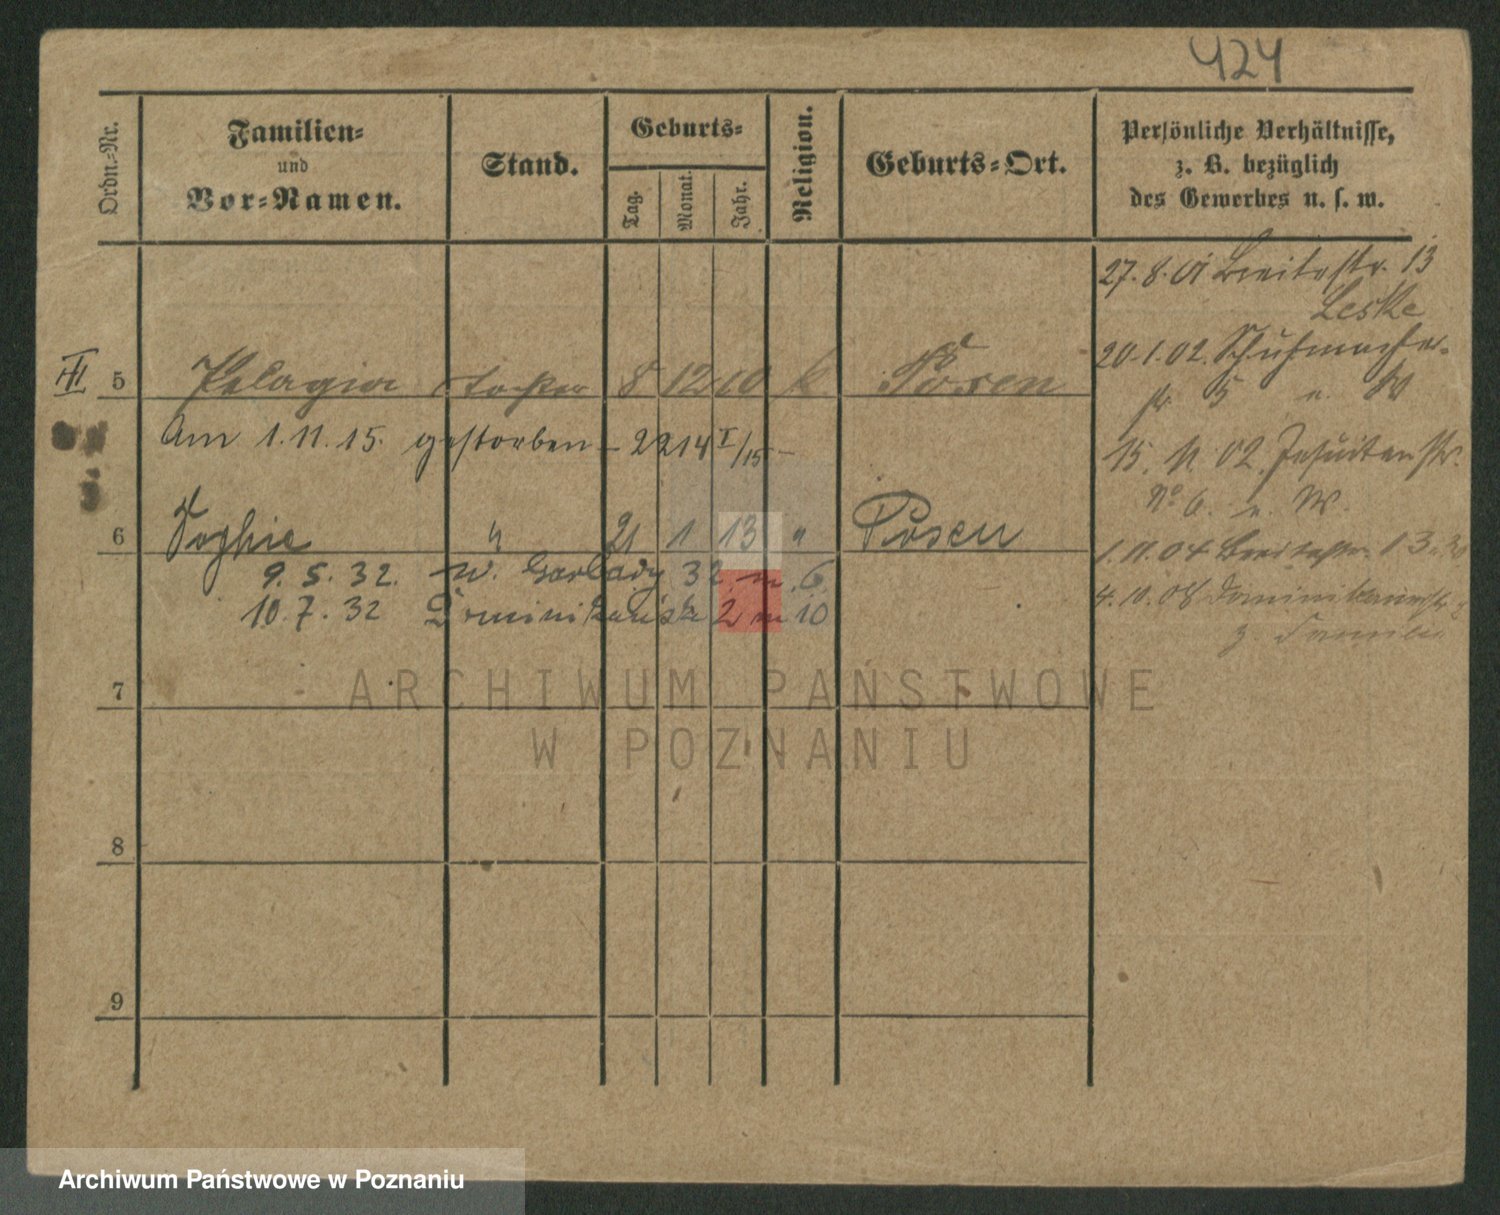 424
Ordn.=Nr.
Familien=
und
Vor=Namen.
Stand.
Geburts=
Tag.
Monat.
Jahr.
Religion.
Geburts=Ort.
Persönliche Verhältnisse,
z. B. bezüglich
des Gewerbes u. s. w.
27. 8. 01 Breitestr. 13
Leske
20. 1. 02. Schuhmacher-
str. 5 u. W
15. 11. 02. Jesuitenstr.
No 6. u. W.
1. 11. 04 Breitestr. 13
4. 10. 08
z. Familie
III 5 Pelagia Tochter 8 12 10 k. Posen
Am 1. 11. 15. gestorben – 2214 I/15 –
6 Sophie " 21 1 13 " Posen
9. 5. 32. W. Garbary 32 m. 6.
10. 7. 32 Dominikańska 2 m 10
7
8
9
ARCHIWUM PAŃSTWOWE
W POZNANIU
Archiwum Państwowe w Poznaniu